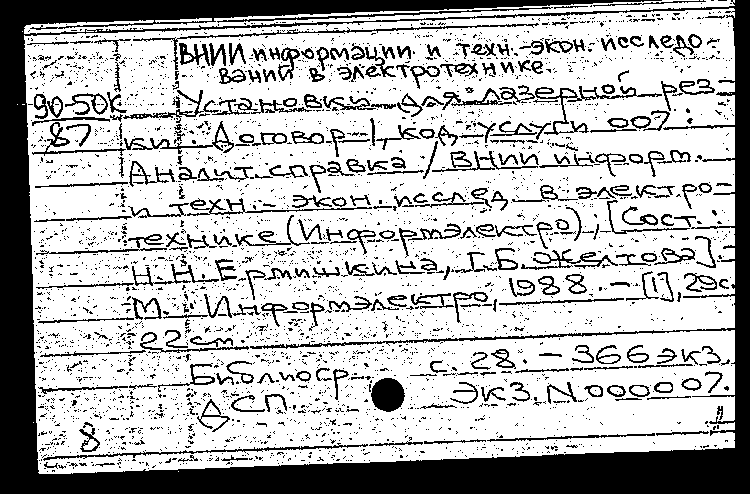 ВНИИ информации и техн.-экон. исследо-
ваний в электротехнике.
90-50К
87
Установки для лазерной рез-
ки : Договор-1, код услуги 007 :
Аналит. справка / ВНИИ информ.
и техн.-экон. исслед. в электро-
технике (Информэлектро) ; [Сост. :
Н. Н. Ермишкина, Г. Б. Желтова]. -
М. : Информэлектро, 1988. - [1], 29 с.
22 см.
Библиогр.: с. 28. - 366 экз.
СП экз. N 000007.
8